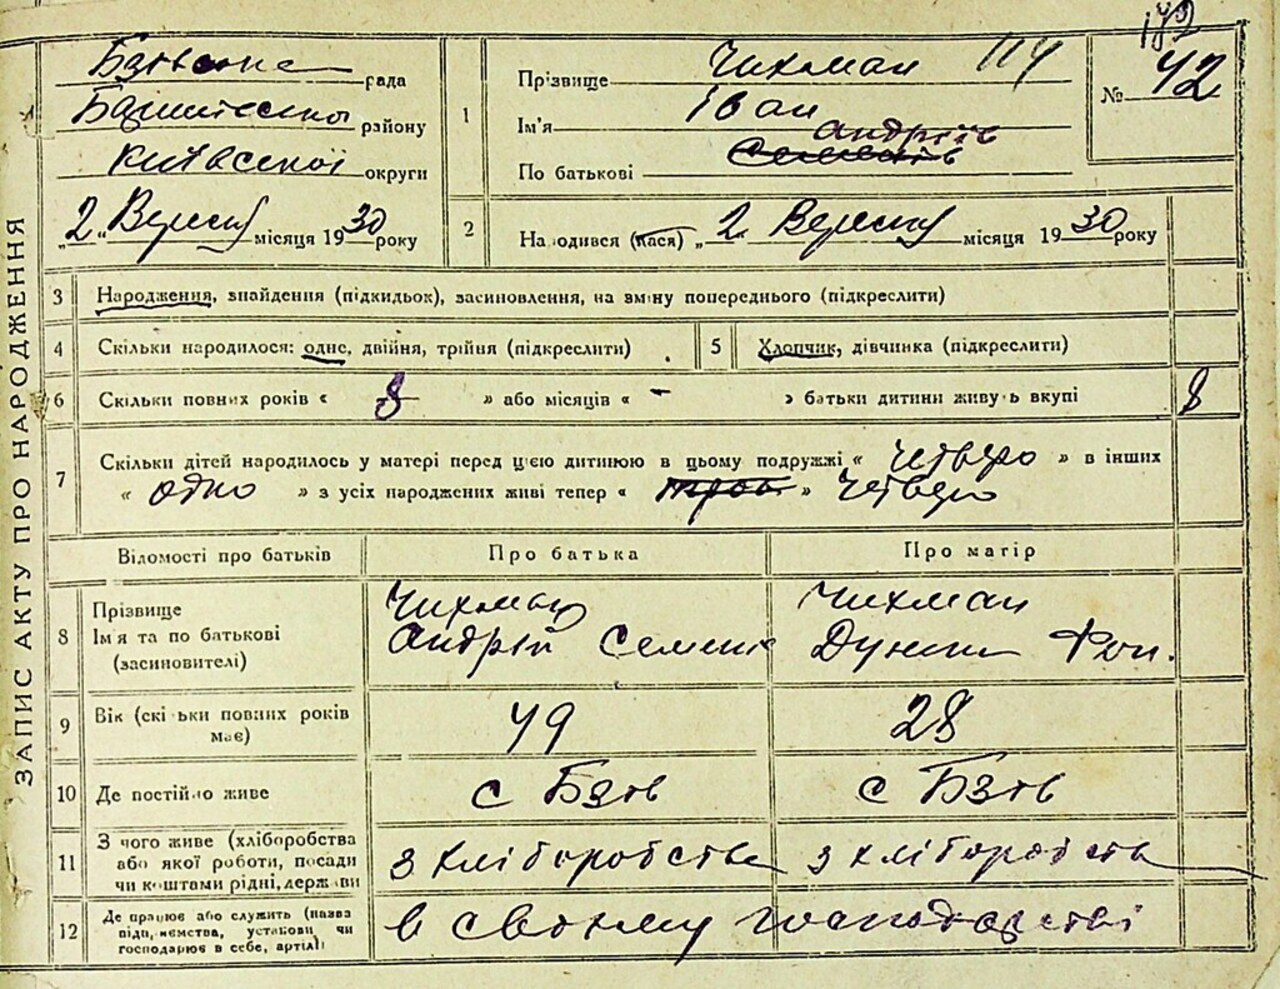 ЗАПИС АКТУ ПРО НАРОДЖЕННЯ
172
Бзівська рада
району
Київської округи
„2„ Вересня місяця 1930 року
1
Прізвище Чихман 114
Ім'я Іван
По батькові Андріїв
№ 42
2
Народився (лася) „2 Вересня місяця 1930 року
3 Народження, знайдення (підкидьок), засиновлення, на зміну попереднього (підкреслити)
4 Скільки народилося: одне, двійня, трійня (підкреслити)
5 Хлопчик, дівчинка (підкреслити)
6 Скільки повних років « 8 » або місяців « - » батьки дитини живуть вкупі 8
7 Скільки дітей народилось у матері перед цією дитиною в цьому подружжі « четверо » в інших
« одно » з усіх народжених живі тепер « троє » четверо
Відомості про батьків Про батька Про матір
8 Прізвище Ім'я та по батькові (засиновителі)
Чихман Андрій Семен
Чихман Дунька
9 Вік (скільки повних років має) 49 28
10 Де постійно живе с Бзів с Бзів
11 З чого живе (хліборобства або якої роботи, посади чи коштами рідні, держави
з хліборобства з хліборобств
12 Де працює або служить (назва підприємства, установи чи господарює в себе, артілі)
в своєму господарстві